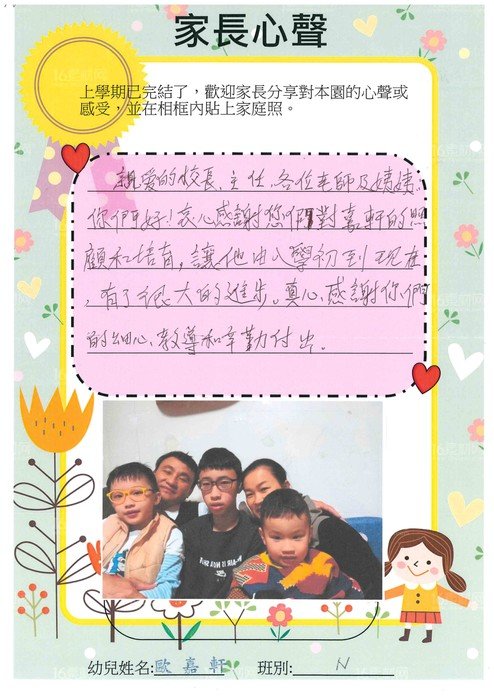 家長心聲
上學期已完結了，歡迎家長分享對本園的心聲或
感受，並在相框內貼上家庭照。
親愛的校長、主任、各位老師及嬸嬸,
你們好!衷心感謝您們對嘉軒的照
顧和培育,讓他由入學初到現在
,有了很大的進步。真心感謝你們
的細心教導和辛勤付出.
幼兒姓名:歐嘉軒 班別: N